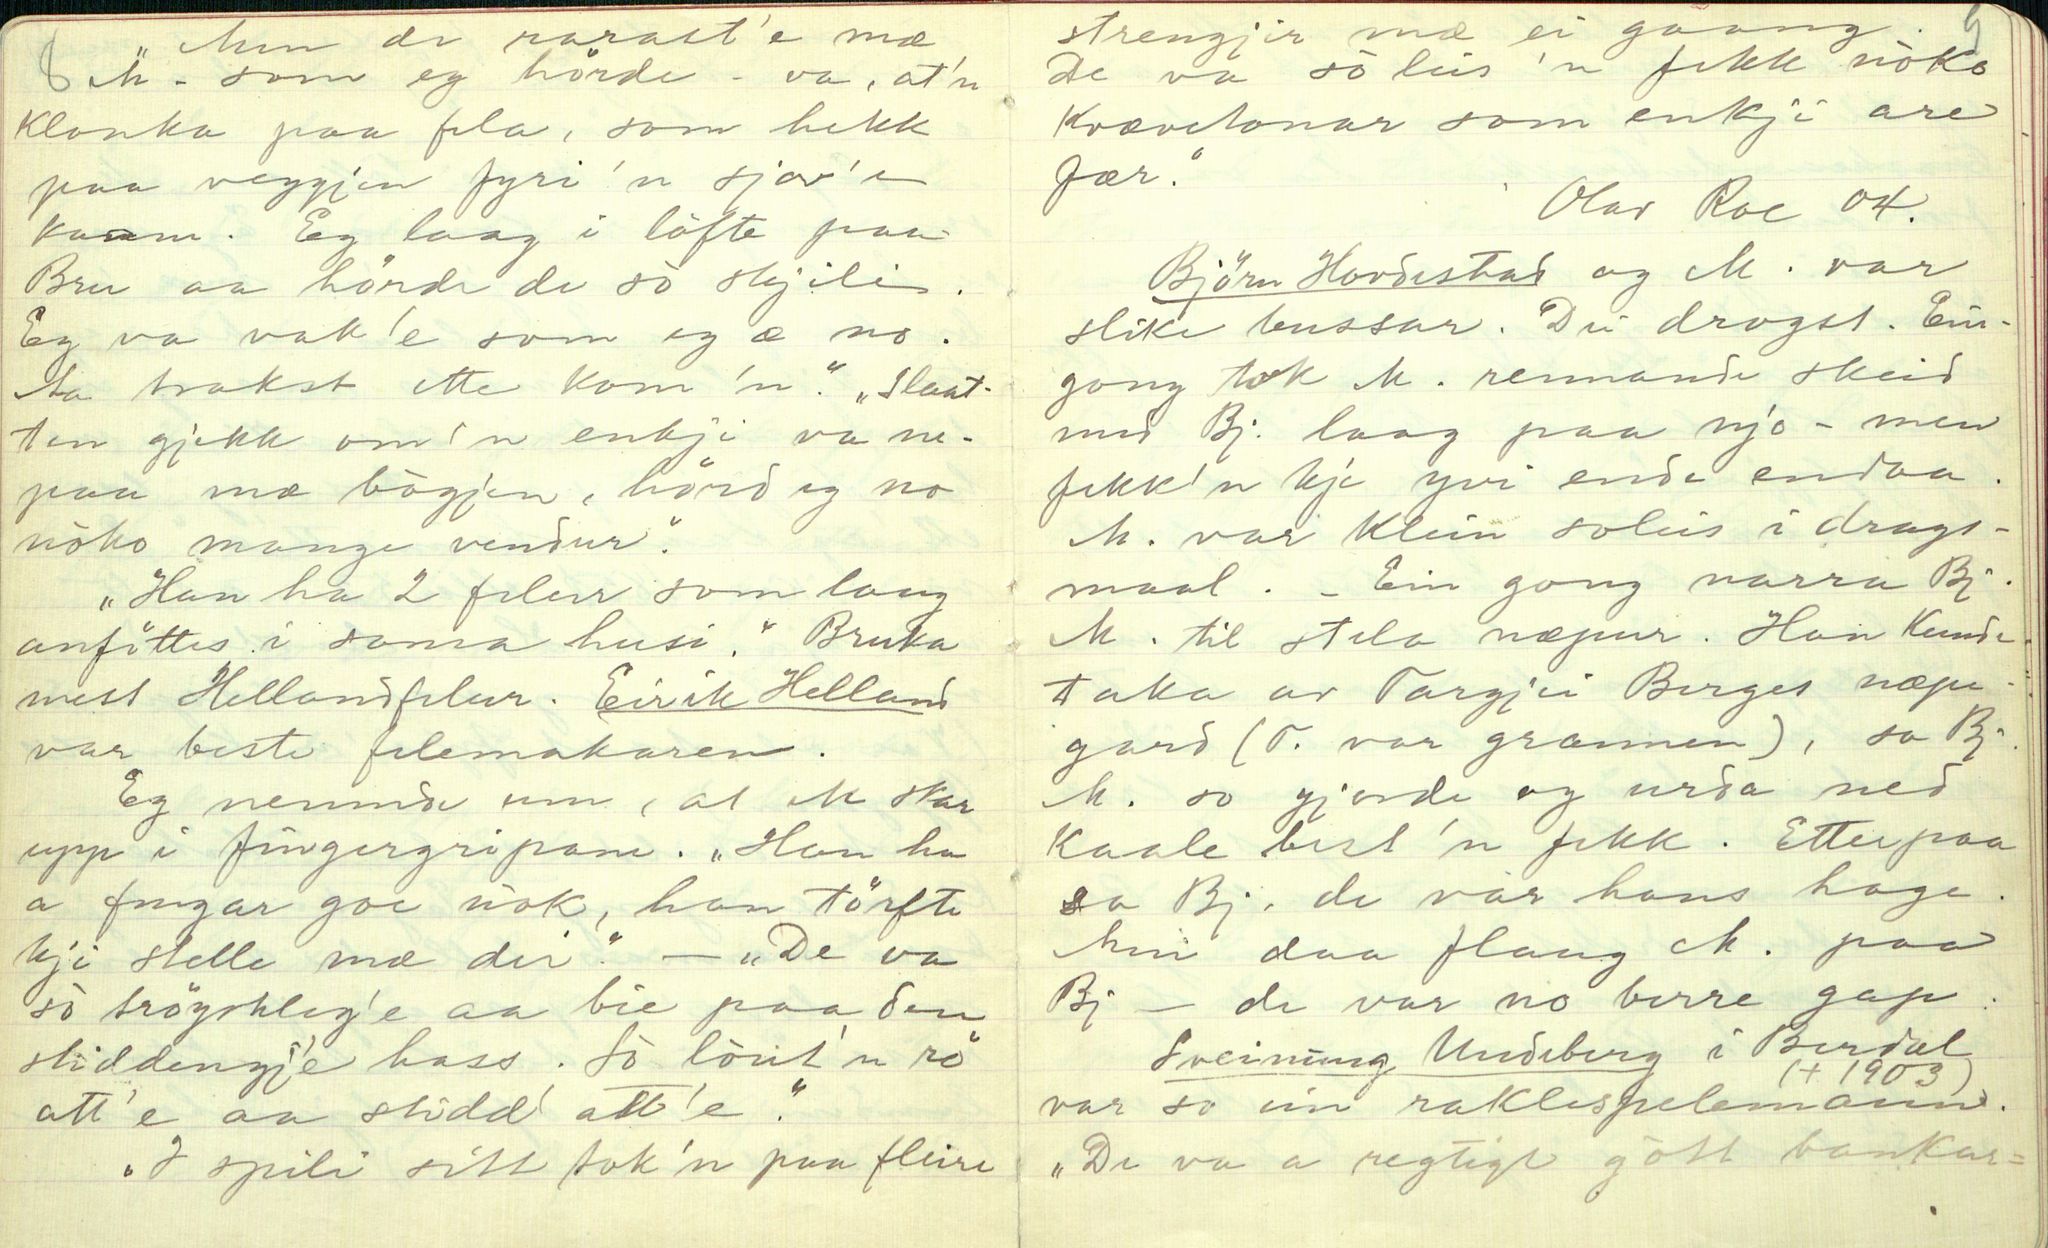 8
„Men de rarast'e mæ
M - som eg hörde - va, at'n
klonka paa fela, som hekk
paa veggjen fyri'n sjøv'e
kaam. Eg laag i löfte paa
Bru aa hörde de sò skjilis.
Eg va vak'e som eg æ no.
Aa trakst ette kom'n." „Slaat-
ten gjekk om'n enkji va ne-
paa mæ bògjen, hörd eg no
nòko mange vendur."
„Han ha 2 felur som laag
anföttes i soma husi." Bruka
mest Hellandfelur. Eirik Helland
var beste felemakaren.
Eg nemnde um, at M skar
upp i fingergripane. „Han ha
a fingar goe nòk, han törfte
kji stelle mæ dei." — „De va
sò tröyskleg'e aa bie paa den
stiddengje hass. Sò lònt'n rö
att'e aa stidd' att'e."
„I spili sitt tok'n paa fleire
9
strengjir mæ ei gaang.
De va sò leis'n fekk nòko
kvævetonar som enkji are
fær."
Olav Roe 04.
Björn Hovdestad og M. var
slike bussar. Dei drogst. Ein-
gong tok M. rennande skeid
med Bj. laag paa njo - men
fekk'n kje yvi ende endaa.
M. var klein soleis i drags-
maal. - Ein gong narra Bj.
M. til stela næpur. Han kunde
taka av Targjei Berges næpe-
gard (T. var grannen), sa Bj.
M. so gjorde og urda ned
kaale best'n fekk. Etterpaa
sa Bj. de var hans hage.
Men daa flaug M. paa
Bj - de var no berre gap.
Sveinung Undeberg i Berdal
(+ 1903)
var so ein raklespelemann.
„De va a regtigt gòtt bankar=